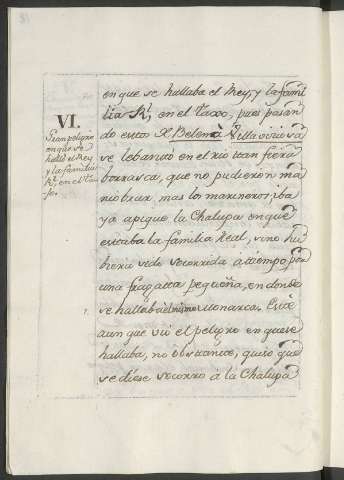 en que se hallaba el Rey, y la fami
lia Rl, en el Taxo, pues pasan
do estos Xa Belem à Villa viciosa
se lebanto en el rio tan fiera
borrasca, que no pudieron ma
niobrar, mas los marineros; iba
ya apique la Chalupa en que
estaba la familia Real, sino hu
biera sido socorrida a tiempo por
una fragatta pequeña, en donde
se hallaba el mismo Monarca. Este
aun que vió el peligro en que se
hallaba, no obstante, quiso que
se diese socorro à la Chalupa
VI.
Gran peligro
en que se
halló el Rey
y la familia
Rl, en el Ta
jo.